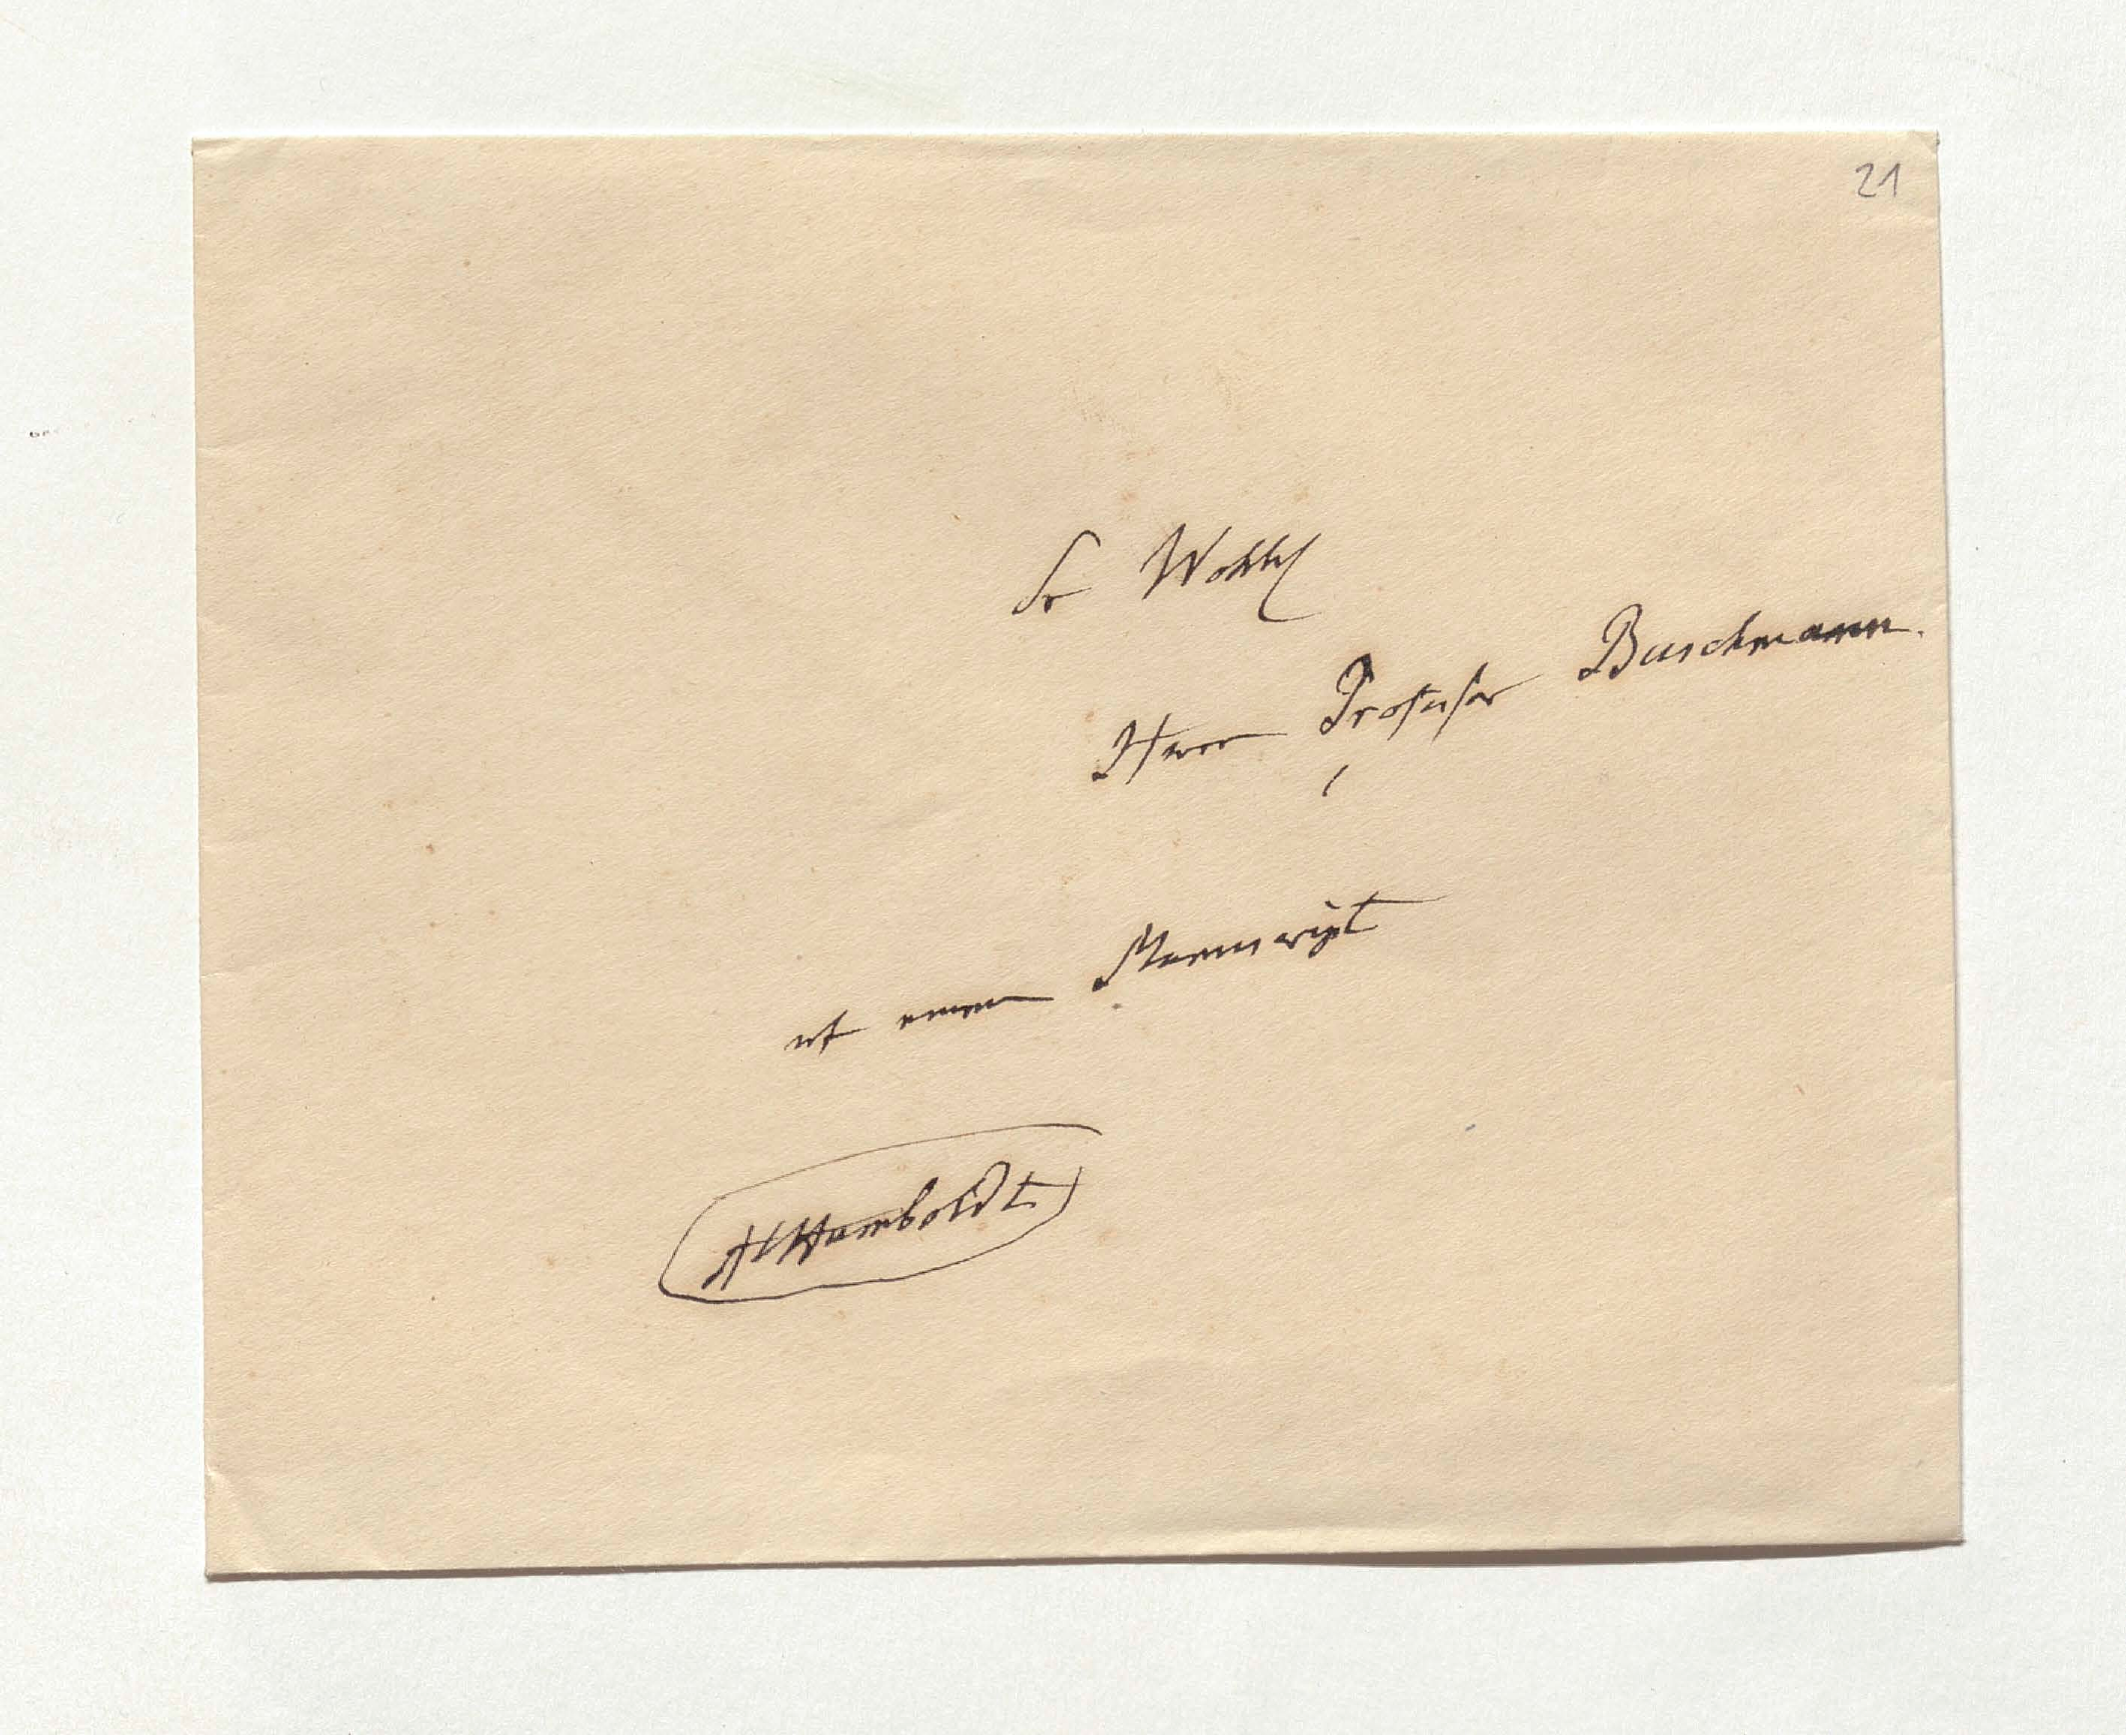 21
Sr Wohlg
Herrn Professor Buschmann.
mit einem Manuscript
AlHumboldt